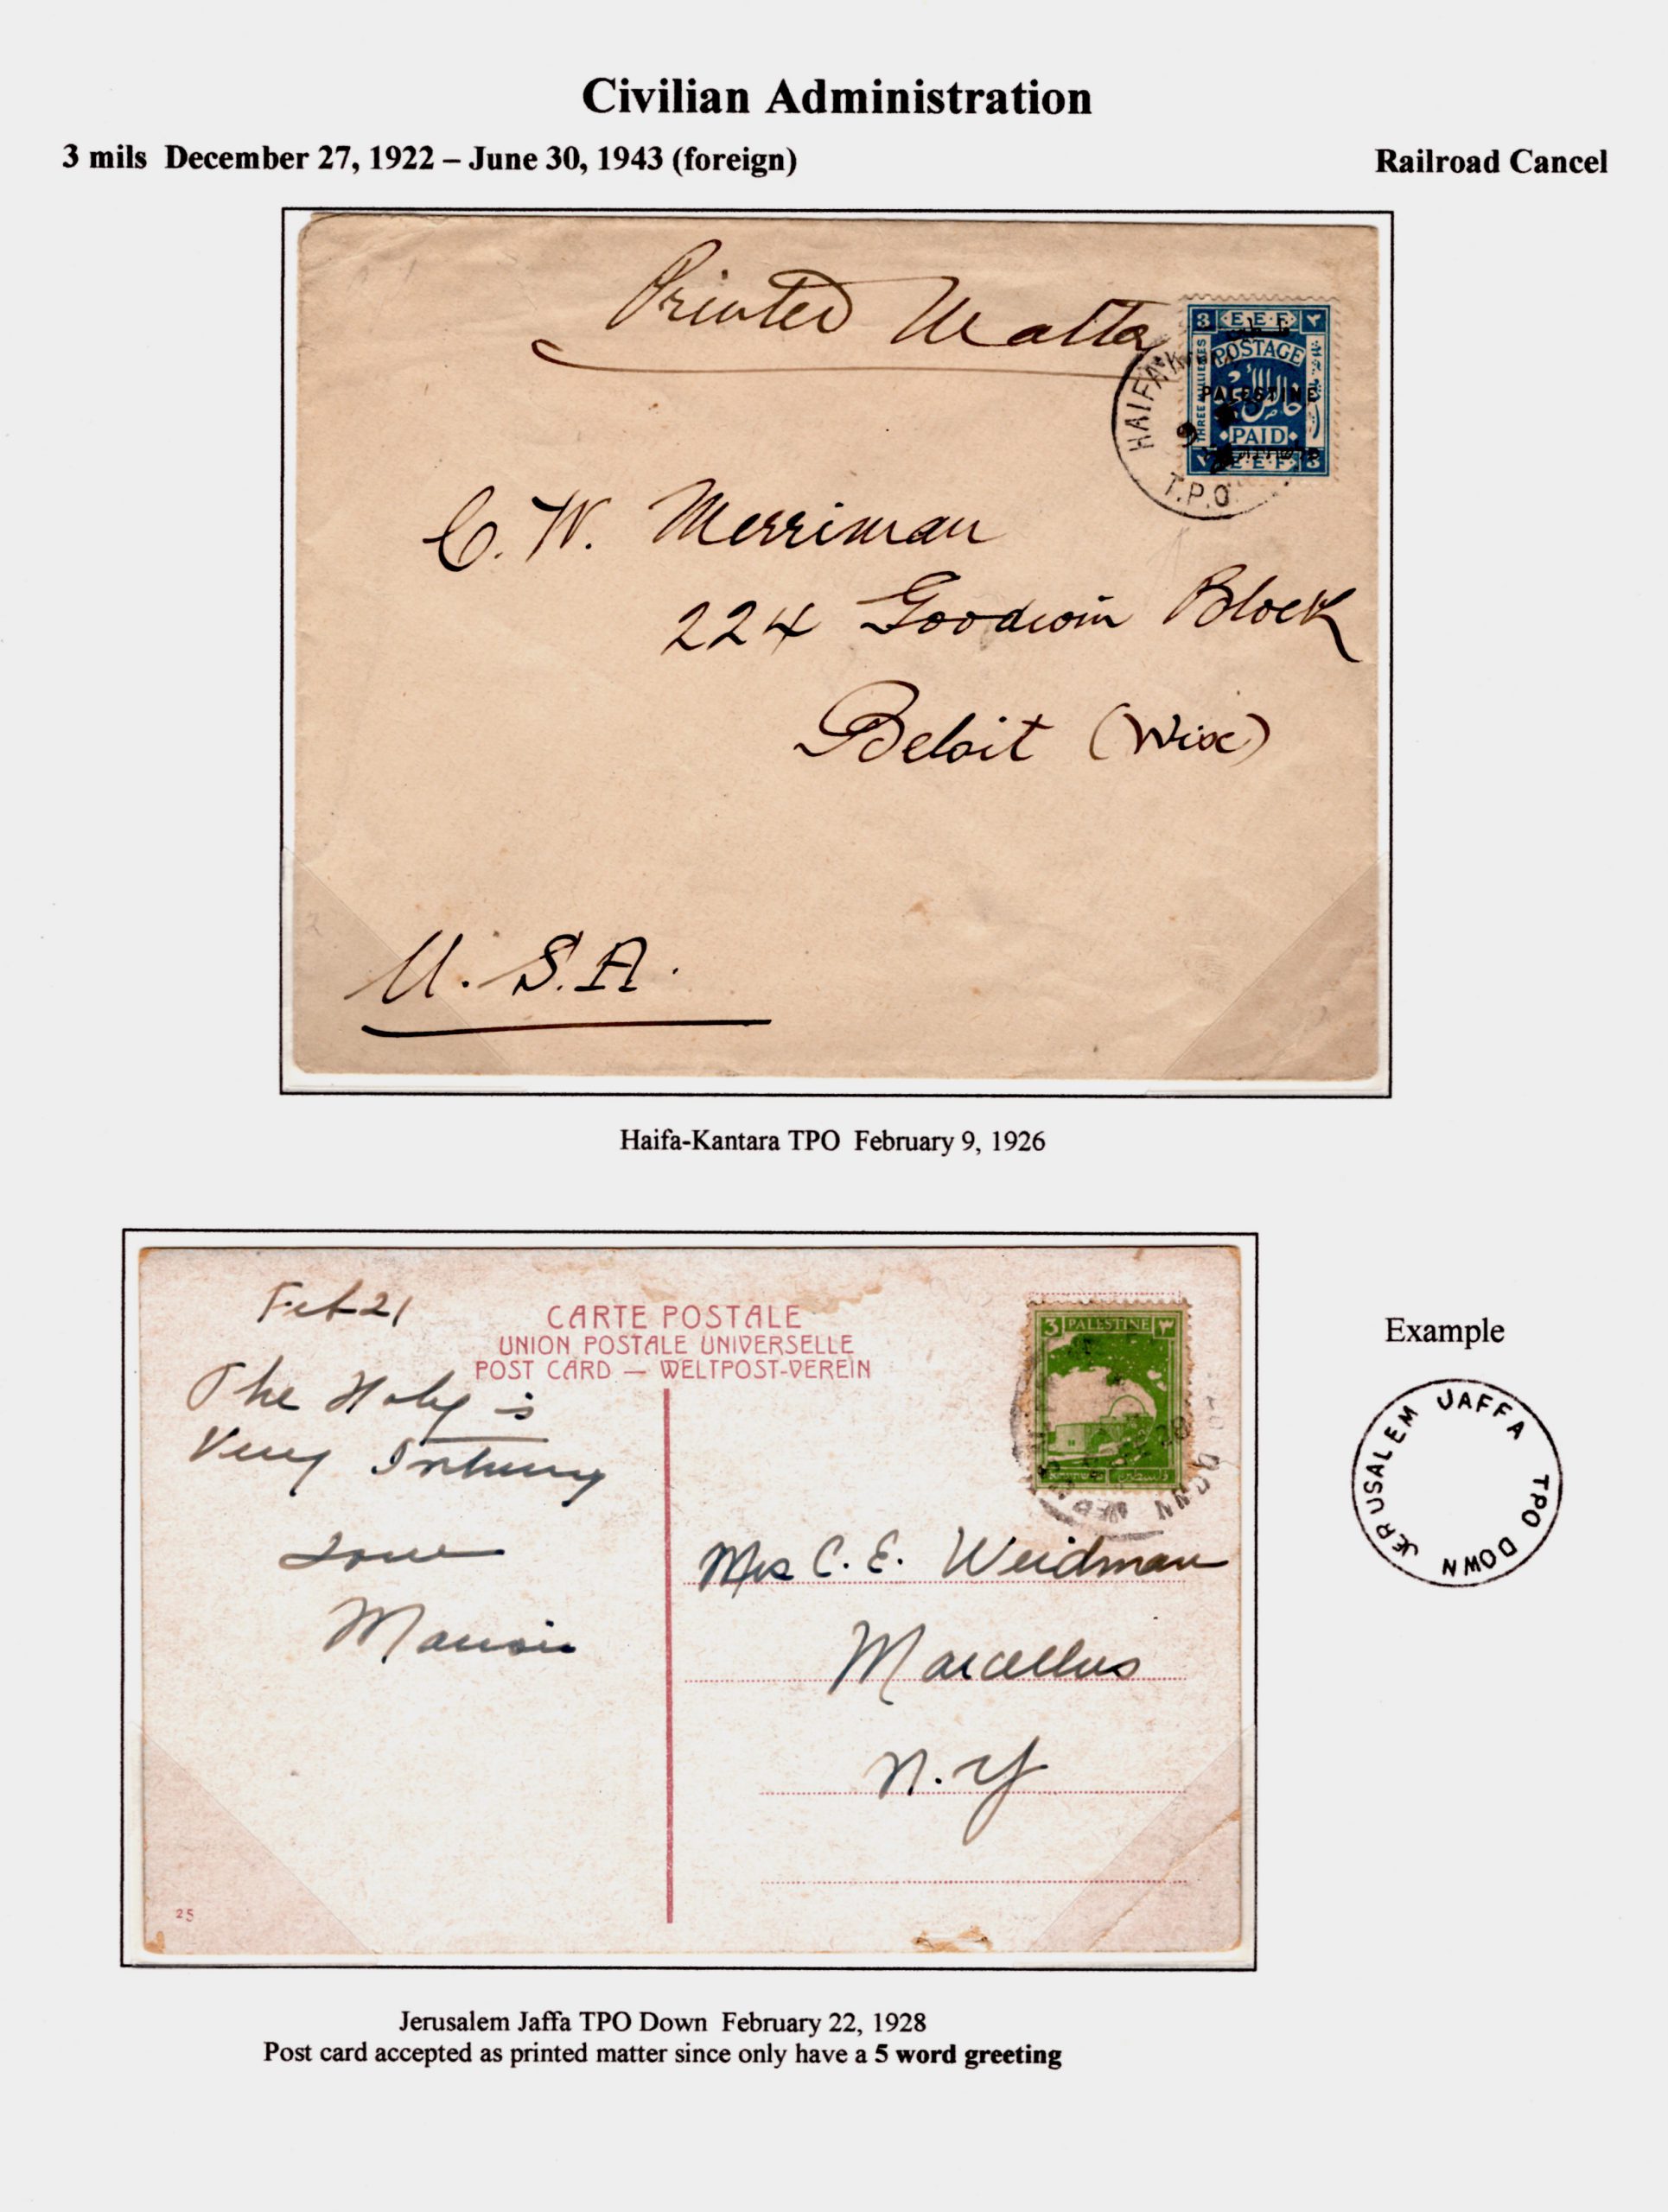 Civilian Administration
3 mils December 27, 1922 – June 30, 1943 (foreign)
Railroad Cancel
Printed Matter
3 E.E.F. ٣
POSTAGE
THREE MILLIEMES
PALESTINE
خالص
PAID
٣ E.E.F. 3
HAIFA K
9
T.P.O.
C. W. Merriman
224 Goodwin Block
Beloit (Wisc)
U.S.A.
Haifa-Kantara TPO February 9, 1926
Feb 21
CARTE POSTALE
UNION POSTALE UNIVERSELLE
POST CARD — WELTPOST-VEREIN
3 PALESTINE ٣
فلسطين
28
DOWN
The Holy is
Very
Love
Mrs C. E. Weidman
Marcellus
N.Y
25
Example
JERUSALEM JAFFA TPO DOWN
Jerusalem Jaffa TPO Down February 22, 1928
Post card accepted as printed matter since only have a 5 word greeting